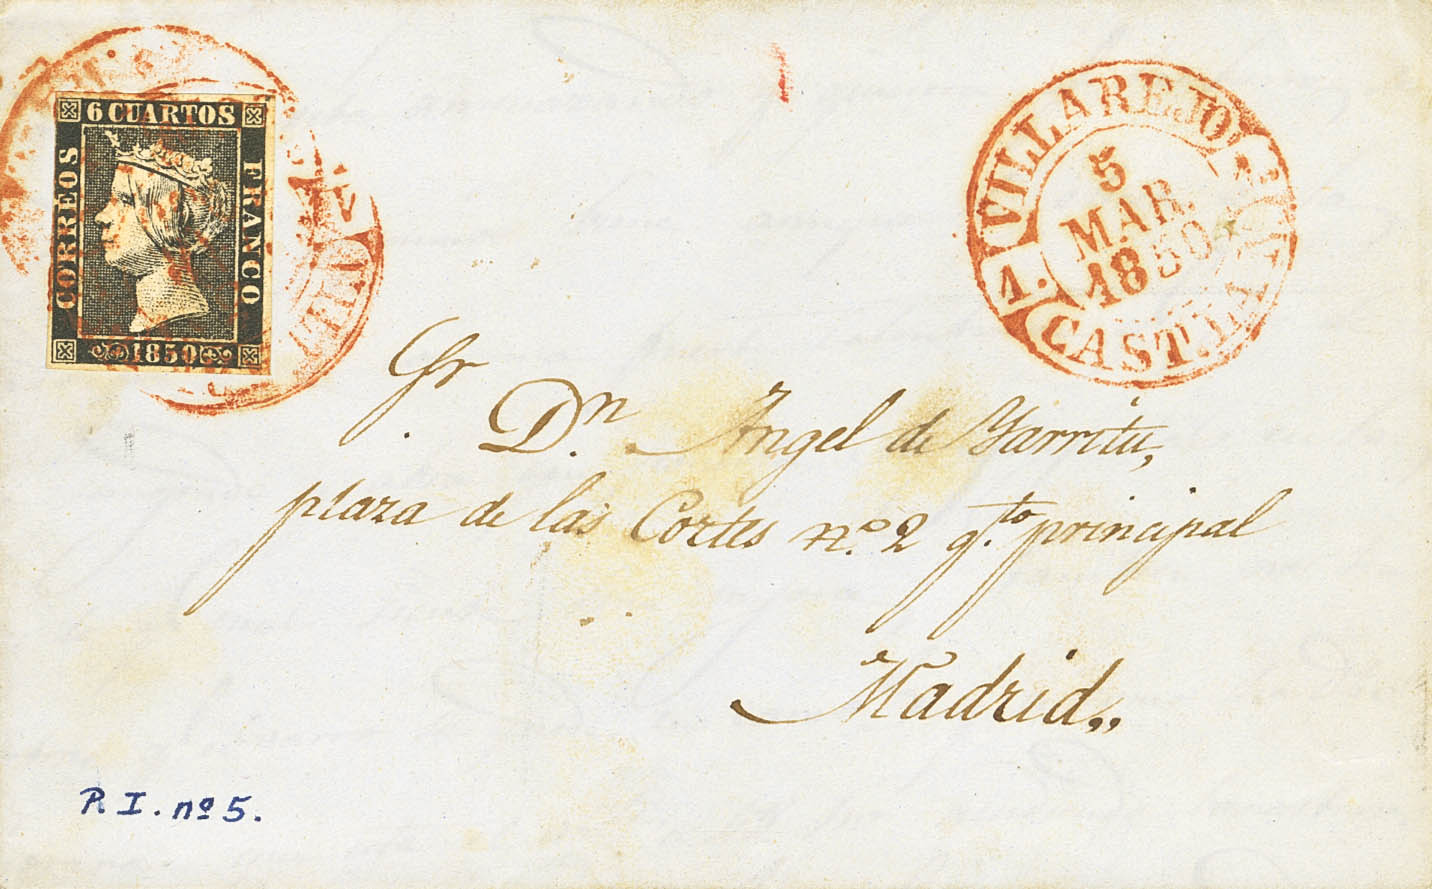 6 CUARTOS
CORREOS
FRANCO
1850
VILLAREJO
5
MAR.
1850
1.
CAST.LA
Sr.
Dn. Angel de Yarritu,
plaza de las Cortes nº. 2 qto. principal
Madrid,,
P. I. nº 5.